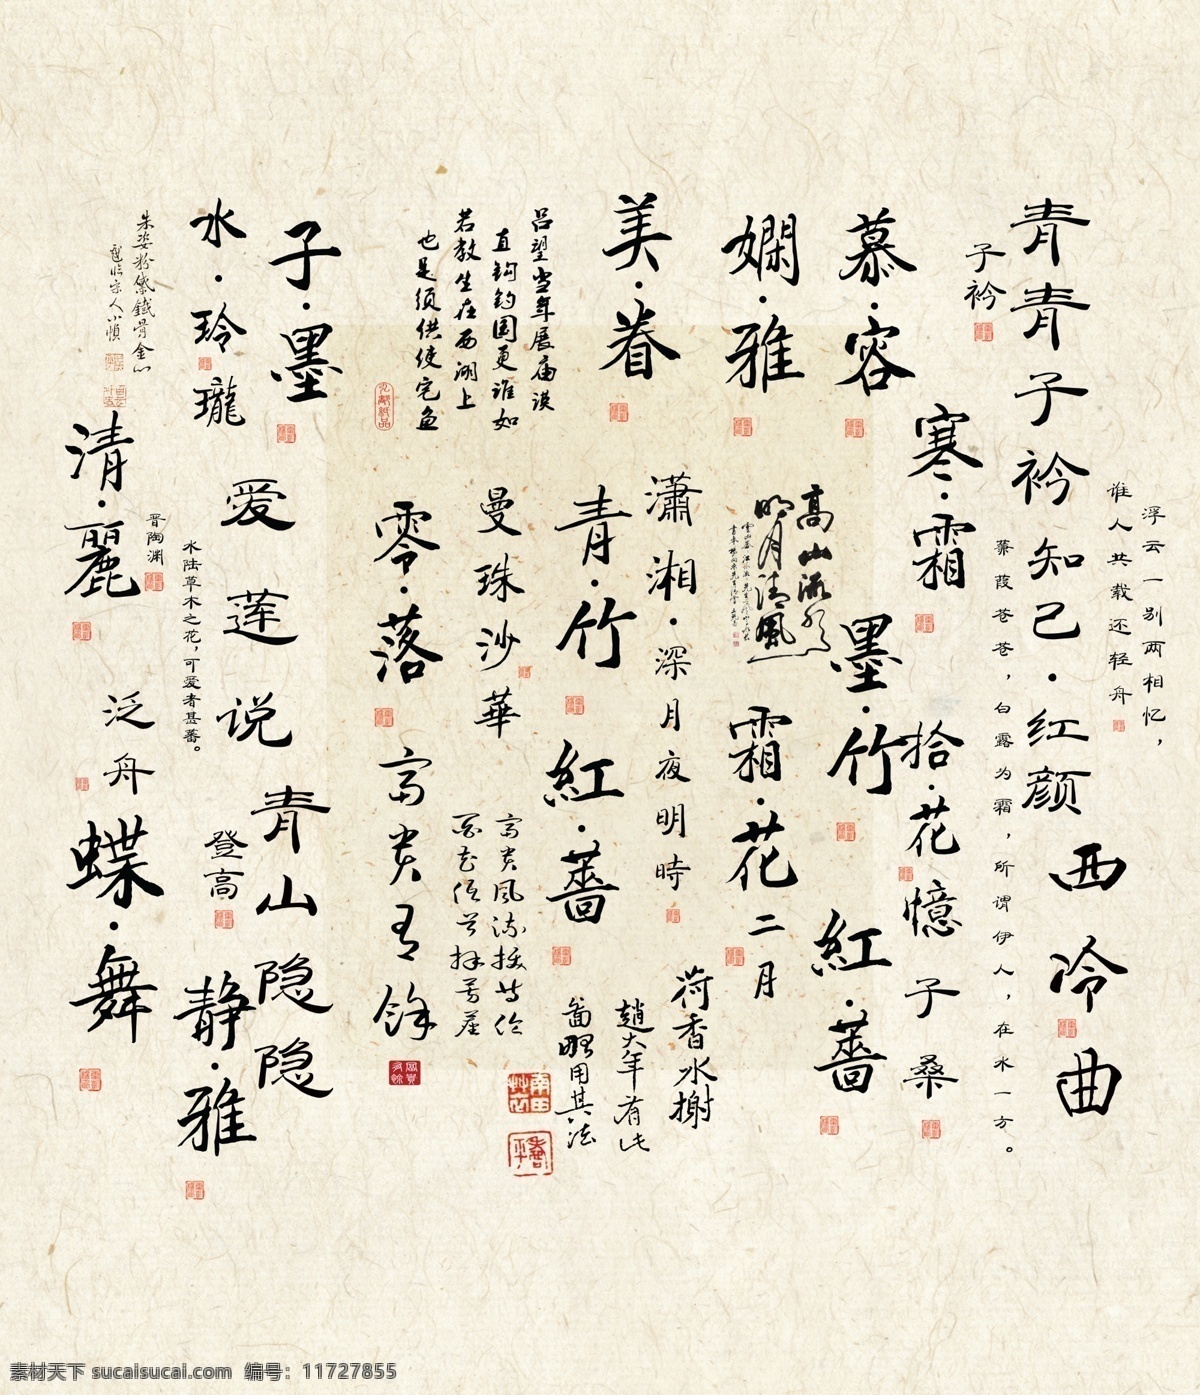 浮云一别两相忆，
谁人共载还轻舟
青青子衿知己·红颜
西冷曲
子衿
蒹葭苍苍，白露为霜，所谓伊人，在水一方。
寒·霜
拾·花憶
子桑
慕·容
墨·竹
紅·薔
嫻·雅
高山流水
明月清風
霜·花
二月
美·眷
瀟湘·深月夜明時
荷香水榭
趙大年有此
啚暇用其法
吕望当年展庙谟
直钩钓国更谁如
若教生在西湖上
也是须供使宅鱼
青·竹
紅·薔
曼珠沙華
零·落
富贵有餘
子·墨
爱莲说
青山隐隐
水·玲瓏
水陆草木之花，可爱者甚蕃。
晋陶渊
登高
静·雅
朱姿粉黛鐵骨金心
清·麗
泛舟
蝶·舞
素材天下 sucaisucai.com 编号：11727855